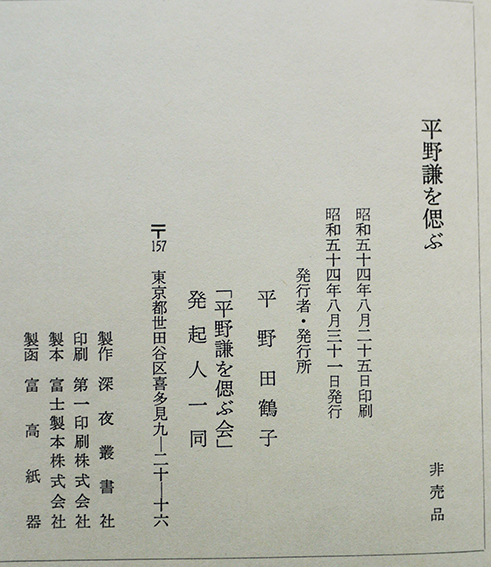 平野謙を偲ぶ
非売品
昭和五十四年八月二十五日印刷
昭和五十四年八月三十一日発行
発行者・発行所
平野田鶴子
「平野謙を偲ぶ会」
発起人一同
〒157 東京都世田谷区喜多見九―二十―十六
製作 深夜叢書社
印刷 第一印刷株式会社
製本 富士製本株式会社
製函 富高紙器